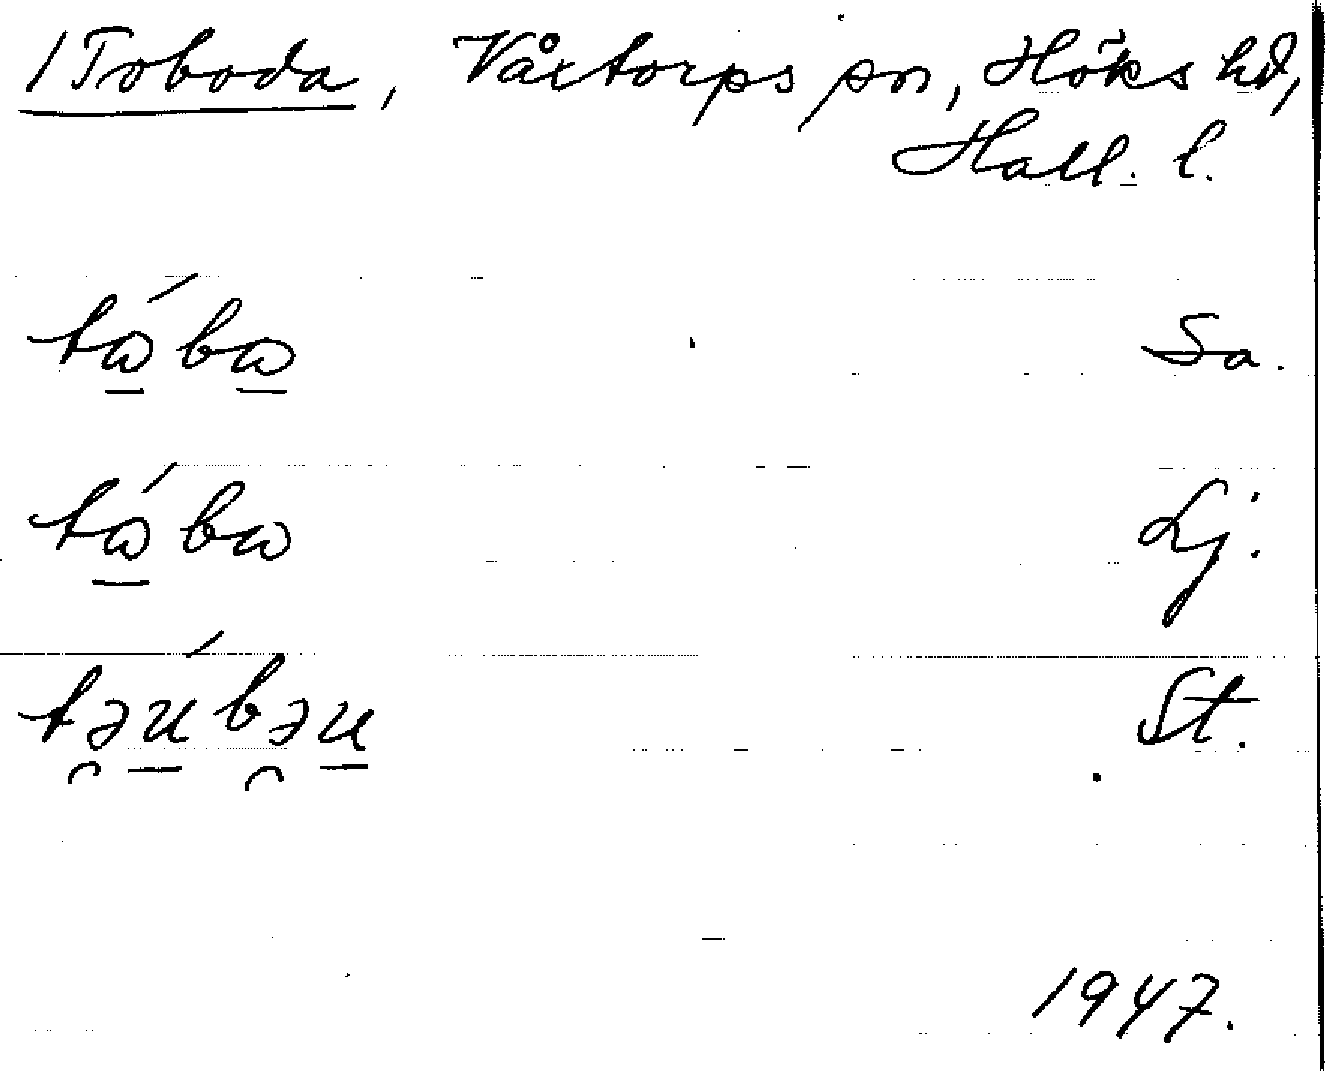 /Toboda, Våxtorps sn, Höks hd,
Hall. l.
tɷ́bɷ Sa.
tɷ́bɷ Lj.
təúbəu St.
1947.